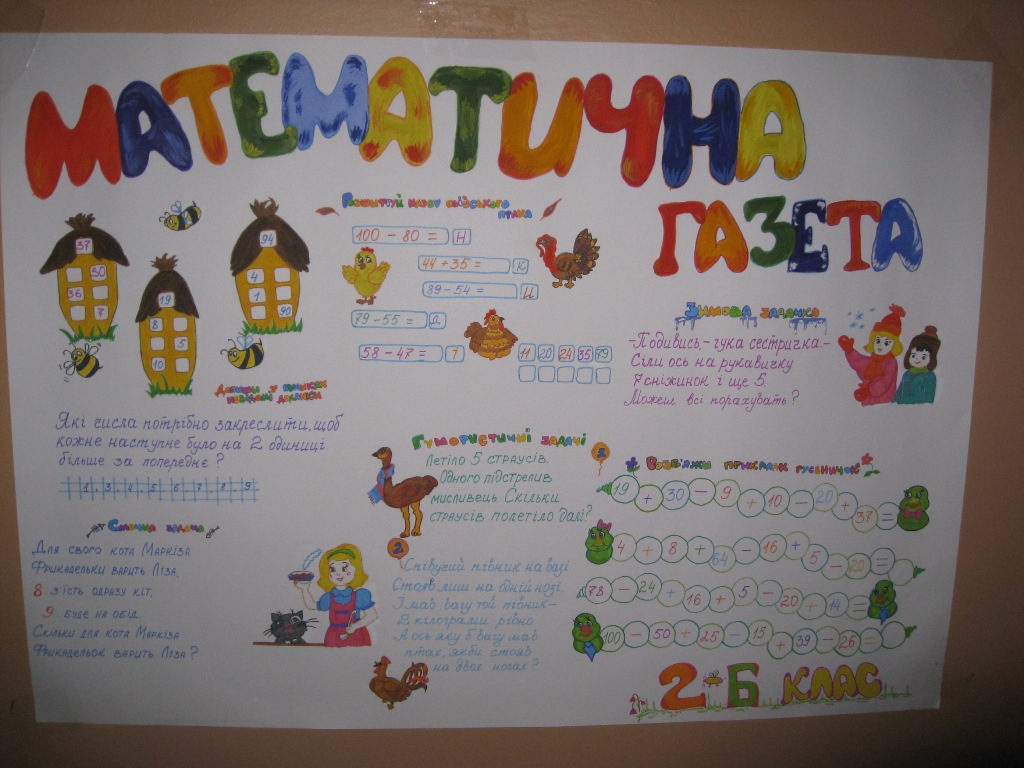 МАТЕМАТИЧНА
ГАЗЕТА
37
30
36
7
19
8
5
10
94
4
1
90
Допиши у будинках
невідомі доданки
Розшифруй назву свійського
птаха
100 - 80 = Н
44 + 35 = К
89 - 54 = И
79 - 55 = Д
58 - 47 = І
11 20 24 35 79
Зимова задачка
-Подивись-гука сестричка-
Сіли ось на рукавичку
7 сніжинок і ще 5.
Можеш всі порахувать?
Які числа потрібно закреслити, щоб
кожне наступне було на 2 одиниці
більше за попереднє?
1, 2, 3, 4, 5, 6, 7, 8, 9
Смачна задача
Для свого кота Маркіза
Фрикадельки варить Ліза.
8 з'їсть одразу кіт,
9 буде на обід.
Скільки для кота Маркіза
Фрикадельок варить Ліза?
Гумористичні задачі
1
Летіло 5 страусів.
Одного підстрелив
мисливець. Скільки
страусів полетіло далі?
2
Співучий півник на базі
Стояв лиш на одній нозі.
І мав вагу той півник-
2 кілограми рівно
А ось яку б вагу мав
птах, якби стояв
на двох ногах?
Розв'яжи приклади гусеничок
19 + 30 - 9 + 10 - 20 + 37 =
4 + 8 + 64 - 16 + 5 - 20 =
78 - 24 + 16 + 5 - 20 + 14 =
100 - 50 + 25 - 15 + 39 - 26 =
2-Б КЛАС